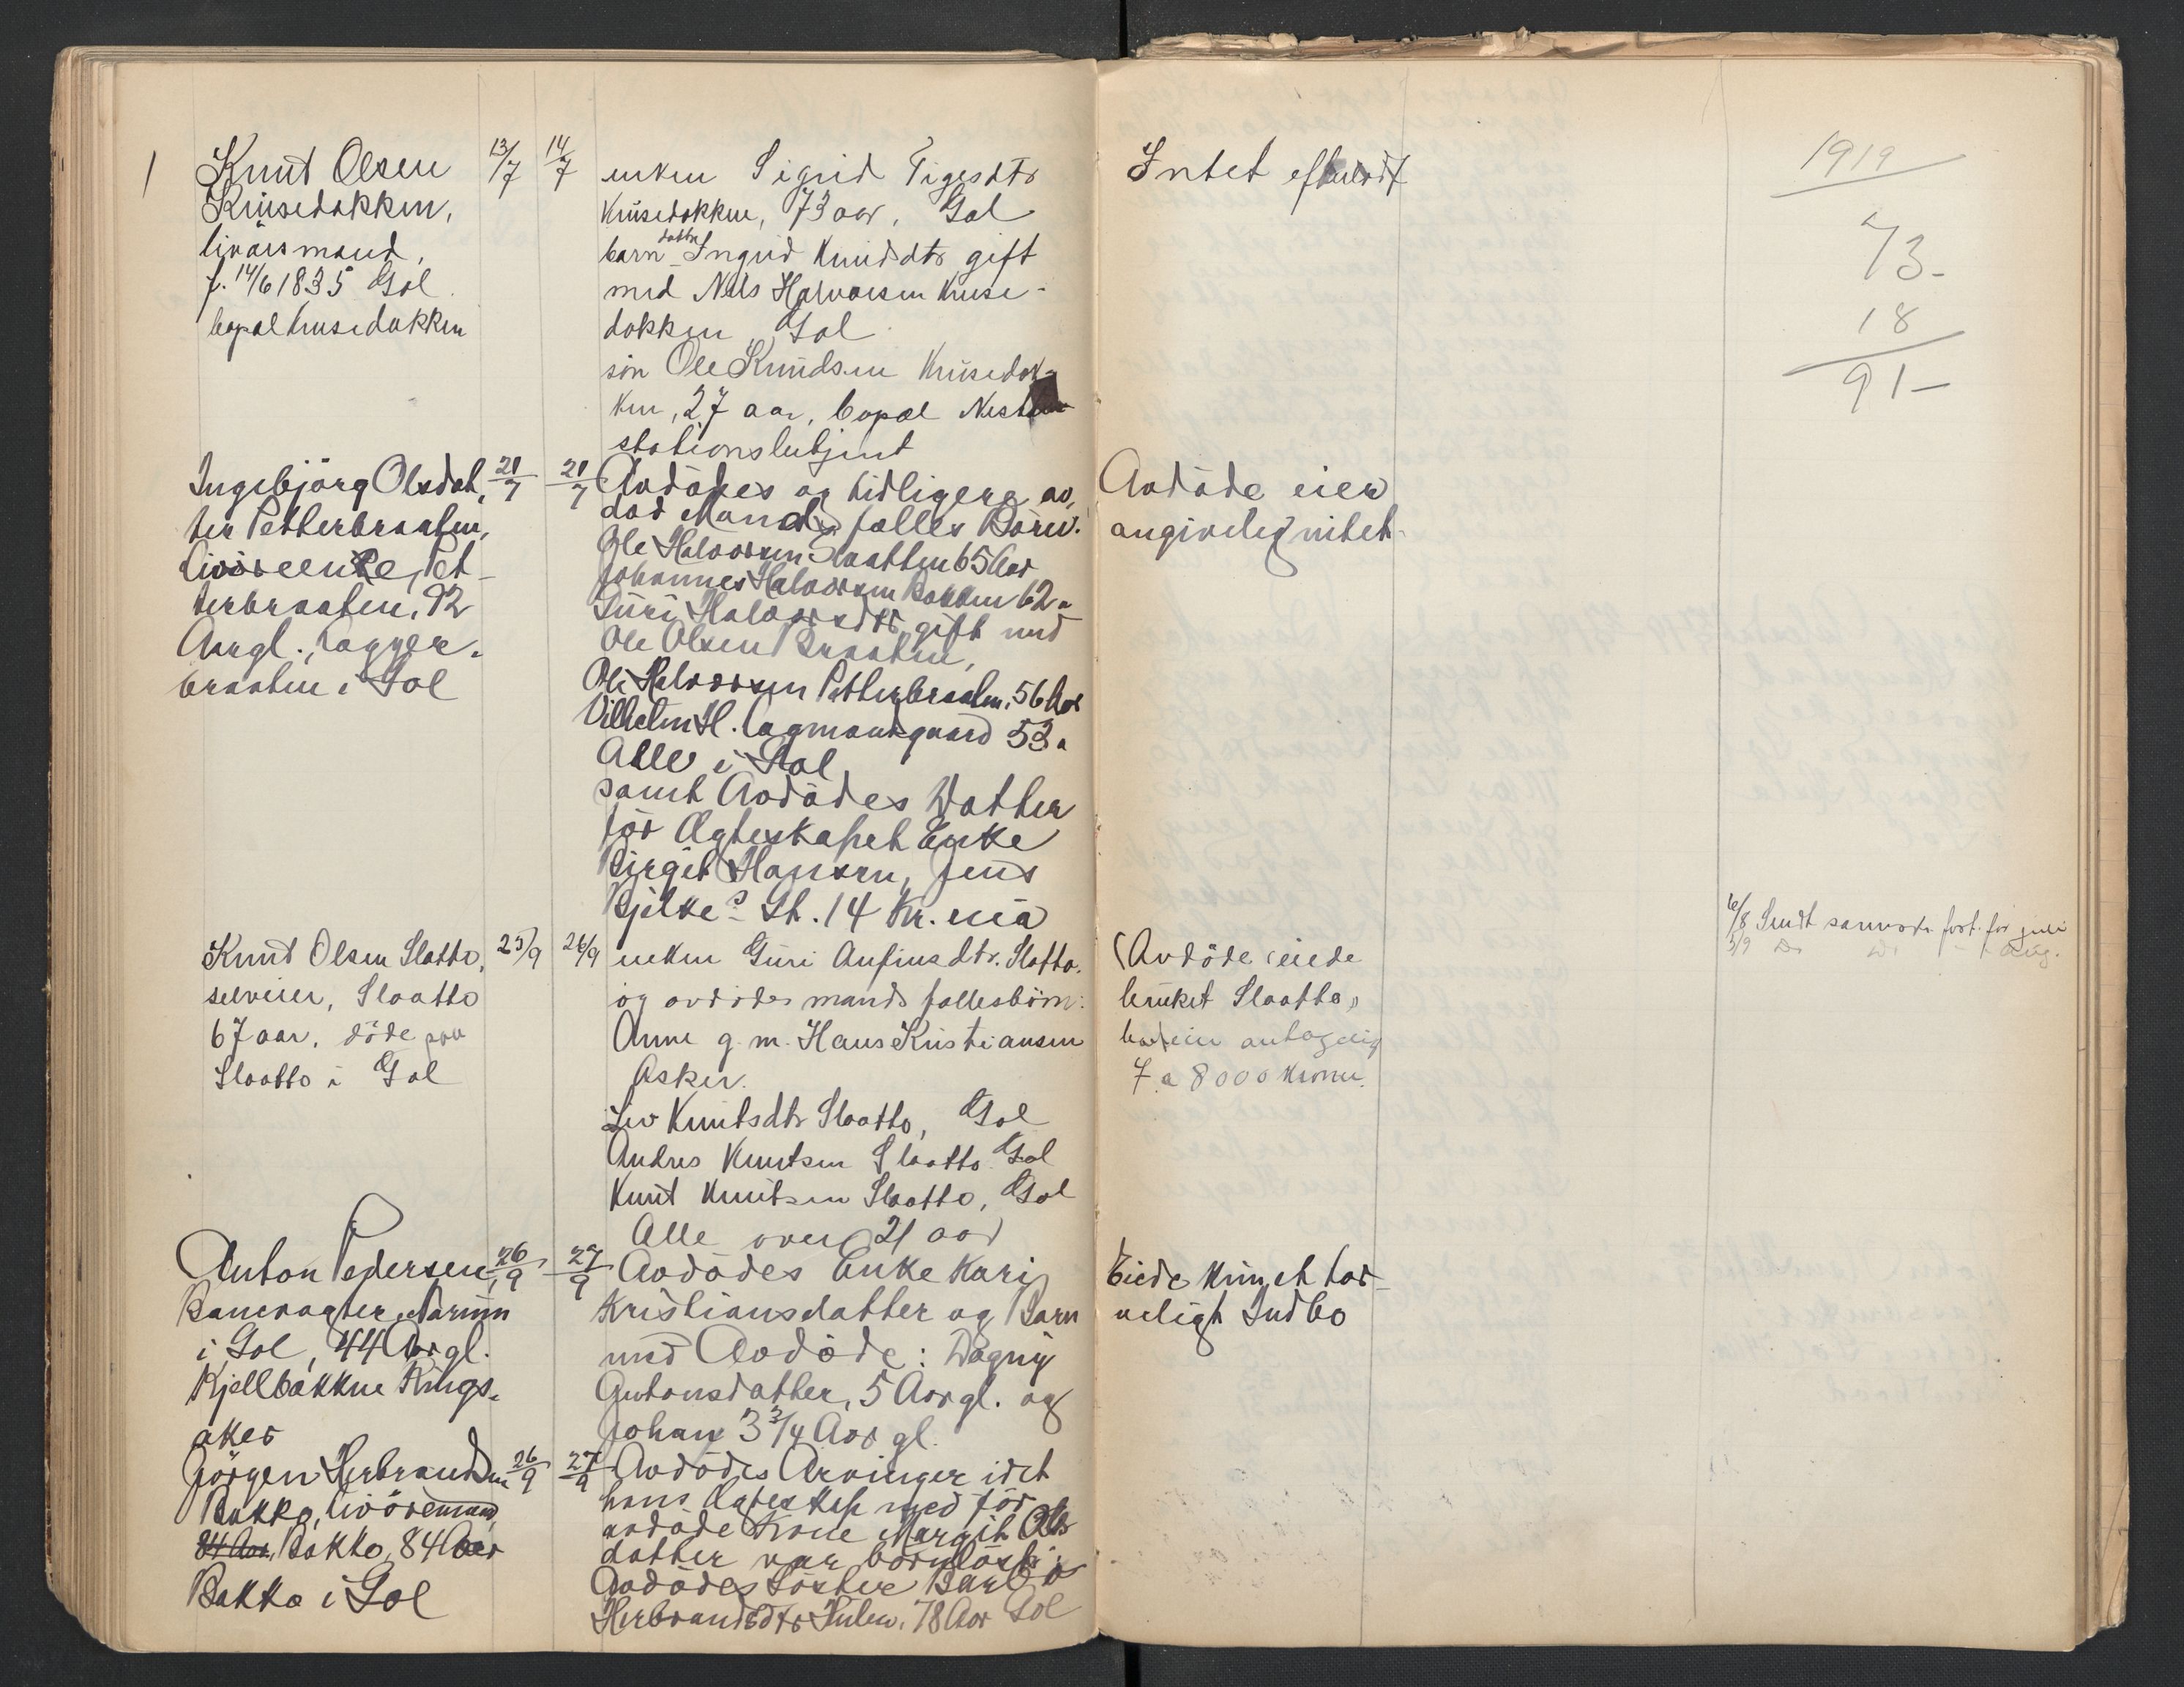 1
Knut Olsen
Krusedokken,
livörsmand,
f. 14/6 1835 Gol.
bopæl Krusedokken
13/7
14/7
enken Sigrid
Krusedokken, 73 aar, Gol
barn datter Ingrid Knudsdtr gift
med Nils Halvorsen Kruse-
dokken, Gol
sön Ole Knudsen Krusedok-
ken, 27 aar, bopæl
stationsbetjent
Intet efterladt
1919
73-
18
91-
Ingebjörg Olsdat,
ter Petterbraaten,
Livöreenke, Pet-
terbraaten, 92
Aargl.,
braaten i Gol
21/7
21/7
Avdödes og tidligere av,
död Mands fælles Börn:
Ole Halvorsen Slaatten 65 Aar
Johannes Halvorsen Bakken 62 "
Guri Halvorsdtr, gift med
Ole Olsen Braaten,
Ole Halvorsen Petterbraaten, 56 Aar
Vilhelm H. Lagmandsgaard 53 "
Alle i Gol
samt Avdödes Datter
för Ægteskapet Enke
Birgit Hansen, Jens
Bjelkes Gt. 14 Kr.nia
Avdöde eier
angivelig intet.
Knut Olsen Slatto,
selveier, Slaatto
67 aar, döde paa
Slaatto i Gol
25/9
26/9
enken Guri Anfinsdtr. Slatto.
og avdödes mands fællesbörn:
Anne g. m. Hans Kristiansen
Asker.
Liv Knutsdtr Slaatto, Gol
Andres Knutsen Slaatto Gol
Knut Knutsen Slaatto, Gol
Alle over 21 aar
Avdöde eiede
bruket Slaatto,
boet eier antagelig
7 a 8000 kroner.
6/8 Sendt fort. for juli
5/9 Do Do - aug.
Anton Pedersen,
Banevogter
i Gol, 44 Aargl.
Kjellbakken Rings-
aker
26/9
27/9
Avdödes Enke Kari
Kristiansdatter og Barn
med Avdöde: Dagny
Antonsdatter, 5 Aargl. og
Johan 3 3/4 Aar gl.
Eiede kun et tar-
veligt Indbo
Jörgen Herbrandsen
Bakko, Livöremand,
84 Aar, Bakko, 84 Aar
Bakko i Gol
26/9
27/9
Avdödes Arvinger idet
hans Ægteskap med för
avdöde Kone Margit Ols
datter var barnlöst:
Avdödes Söster Barbo
Herbrandsdtr Hulen, 78 Aar Gol